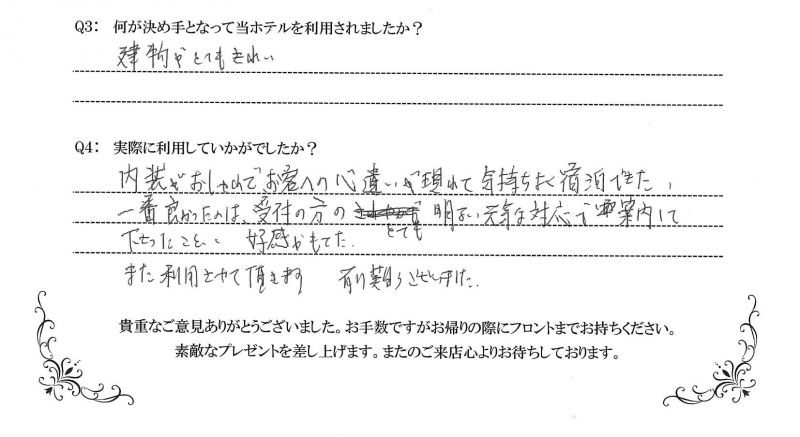 Q3: 何が決め手となって当ホテルを利用されましたか?
建物がとてもきれい
Q4: 実際に利用していかがでしたか?
内装がおしゃれでお客への心遣いが現れて気持ちよく宿泊できた。
一番良かったのは、受付の方の とても 明るい元気な対応で 案内して
下さったこと。 好感がもてた。
また利用させて頂きます 有り難うございました。
貴重なご意見ありがとうございました。お手数ですがお帰りの際にフロントまでお持ちください。
素敵なプレゼントを差し上げます。またのご来店心よりお待ちしております。